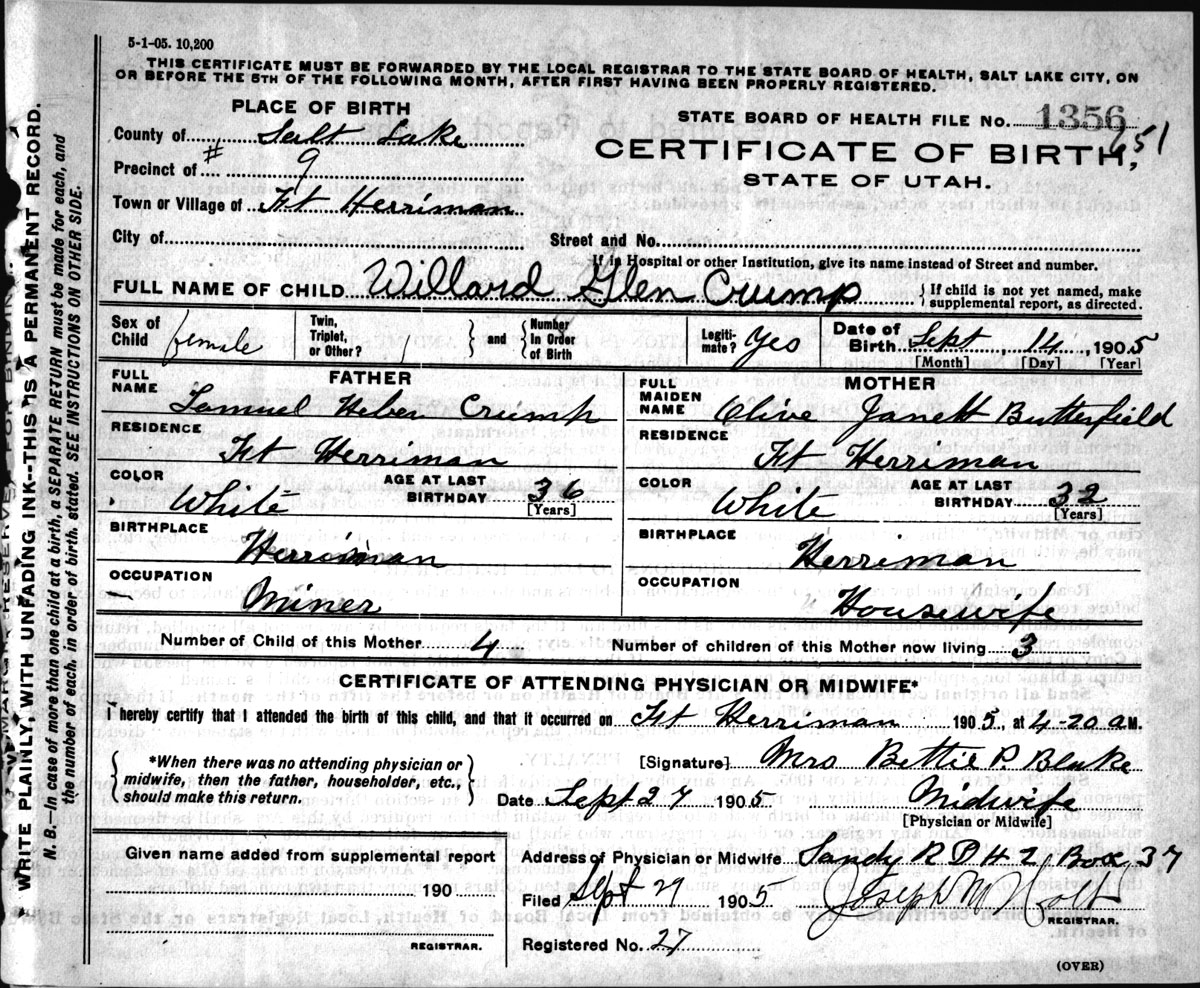 5-1-05. 10,200
THIS CERTIFICATE MUST BE FORWARDED BY THE LOCAL REGISTRAR TO THE STATE BOARD OF HEALTH, SALT LAKE CITY, ON
OR BEFORE THE 5TH OF THE FOLLOWING MONTH, AFTER FIRST HAVING BEEN PROPERLY REGISTERED.
PLACE OF BIRTH
STATE BOARD OF HEALTH FILE No. 1356
County of Salt Lake
651
CERTIFICATE OF BIRTH,
Precinct of # 9
STATE OF UTAH.
Town or Village of Ft Herriman
City of
Street and No.
If in Hospital or other Institution, give its name instead of Street and number.
FULL NAME OF CHILD Willard Glen Crump
{If child is not yet named, make
supplemental report, as directed.
Sex of Child female
Twin, Triplet, or Other? } and { Number in Order of Birth
Legiti-mate? Yes
Date of Birth. Sept 14, 1905
[Month] [Day] [Year]
FATHER
FULL NAME
Samuel Heber Crump
RESIDENCE
Ft Herriman
COLOR
White
AGE AT LAST BIRTHDAY 36
[Years]
BIRTHPLACE
Herriman
OCCUPATION
Miner
MOTHER
FULL MAIDEN NAME
Olive Janett Butterfield
RESIDENCE
Ft Herriman
COLOR
White
AGE AT LAST BIRTHDAY 32
[Years]
BIRTHPLACE
Herriman
OCCUPATION
Housewife
Number of Child of this Mother 4
Number of children of this Mother now living 3
CERTIFICATE OF ATTENDING PHYSICIAN OR MIDWIFE*
I hereby certify that I attended the birth of this child, and that it occurred on Ft Herriman 1905, at 4-20 a M.
{*When there was no attending physician or
midwife, then the father, householder, etc.,
should make this return.}
[Signature] Mrs Bettie P Blake
Date Sept 27 1905 Midwife
[Physician or Midwife]
Given name added from supplemental report
190
REGISTRAR.
Address of Physician or Midwife Sandy R D # 2, Box 37
Filed Sept 29 1905 Joseph M Holt
REGISTRAR.
Registered No. 27
(OVER)
WRITE PLAINLY, WITH UNFADING INK--THIS IS A PERMANENT RECORD.
N. B.--In case of more than one child at a birth, a SEPARATE RETURN must be made for each, and
the number of each, in order of birth, stated. SEE INSTRUCTIONS ON OTHER SIDE.